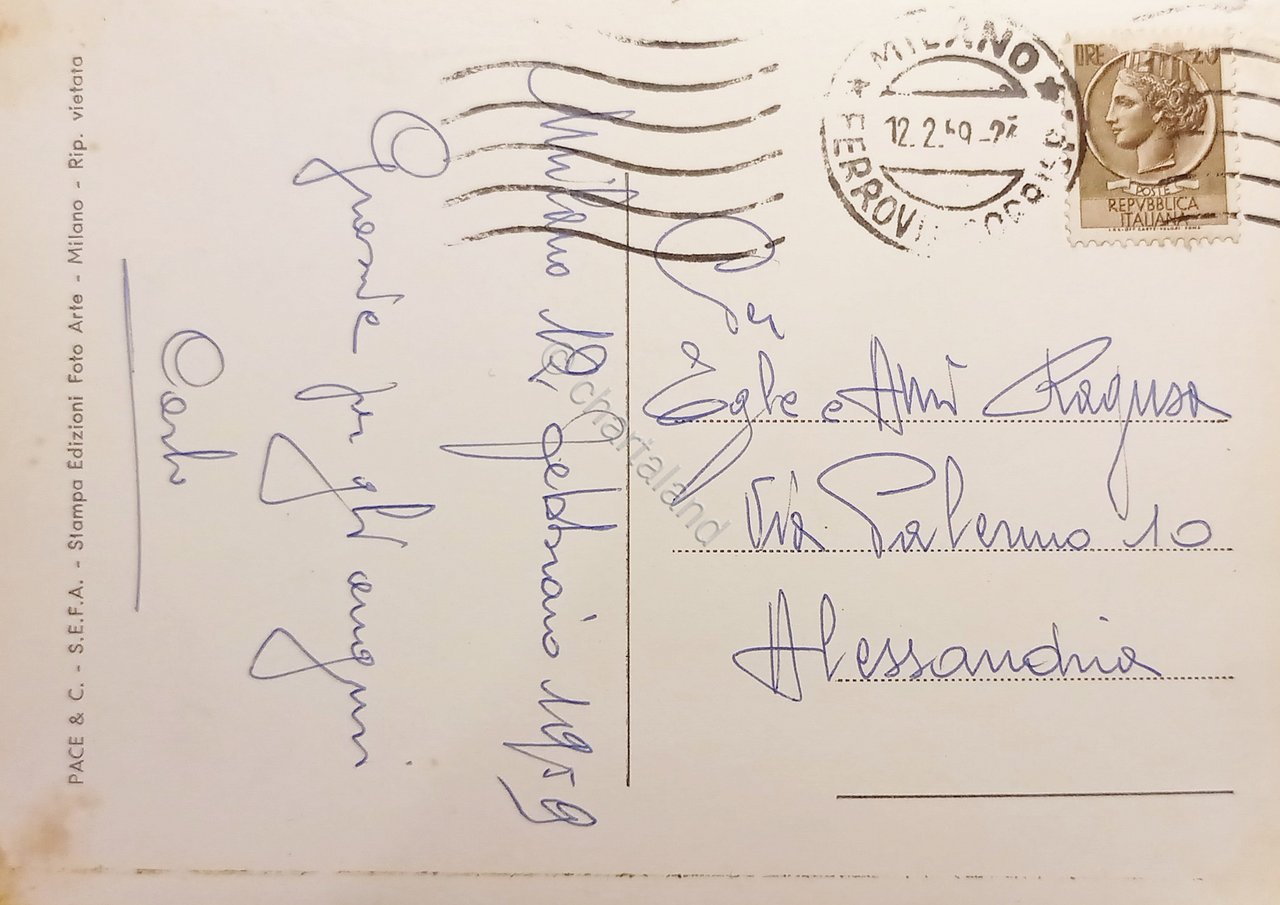 PACE & C. - S.E.F.A. - Stampa Edizioni Foto Arte - Milano - Rip. vietata
Milano 12, febbraio 1959
Grazie per gli auguri
Carlo
MILANO
FERROVIA
12.2.59
LIRE 20
POSTE
REPVBBLICA
ITALIANA
Per
Egle e Ami Ragusa
Via Palermo 10
Alessandria
© chartaland